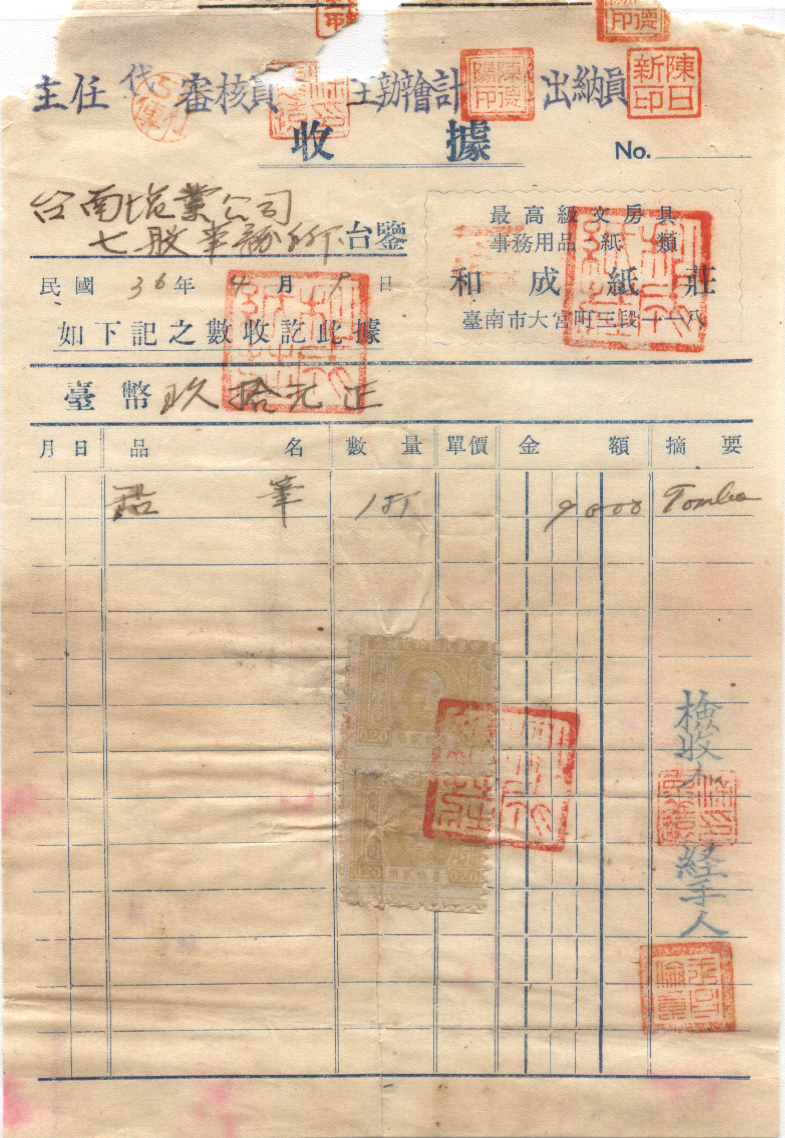 主任 代 審核員 主辦會計 出納員
陳德陽印
陳日新印
收據
No.
台南塩業公司
七股業務所 台鑒
最高級文房具
事務用品紙類
和成紙莊
臺南市大宮町三段一一八
民國 36年 4月 9日
如下記之數收訖此據
臺幣 玖拾元正
月 日 品名 數量 單價 金額 摘要
鉛筆 1打 9000 Tombo
0.20
0.20 0.20
檢收人
経手人